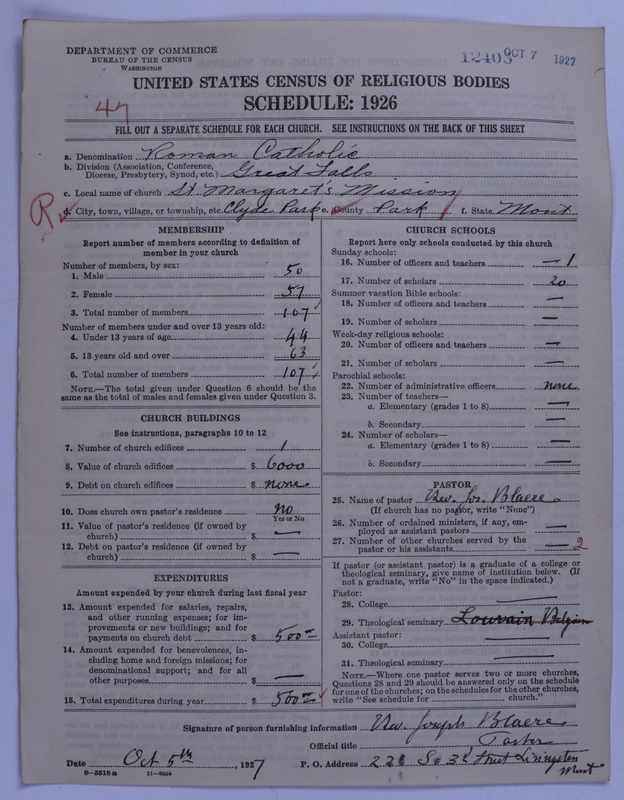 DEPARTMENT OF COMMERCE
BUREAU OF THE CENSUS
WASHINGTON
12403 OCT 7 1927
UNITED STATES CENSUS OF RELIGIOUS BODIES
SCHEDULE: 1926
47
FILL OUT A SEPARATE SCHEDULE FOR EACH CHURCH. SEE INSTRUCTIONS ON THE BACK OF THIS SHEET
a. Denomination Roman Catholic
b. Division (Association, Conference, Diocese, Presbytery, Synod, etc.) Great Falls
c. Local name of church St Margaret's Mission
R
d. City, town, village, or township, etc. Clyde Park e. County Park f. State Mont
MEMBERSHIP
Report number of members according to definition of
member in your church
Number of members, by sex:
1. Male 50
2. Female 57
3. Total number of members 107
Number of members under and over 13 years old:
4. Under 13 years of age 44
5. 13 years old and over 63
6. Total number of members 107
NOTE.—The total given under Question 6 should be the
same as the total of males and females given under Question 3.
CHURCH BUILDINGS
See instructions, paragraphs 10 to 12
7. Number of church edifices 1
8. Value of church edifices $ 6000
9. Debt on church edifices $ none
10. Does church own pastor's residence no
Yes or No
11. Value of pastor's residence (if owned by
church) $ —
12. Debt on pastor's residence (if owned by
church) $ —
EXPENDITURES
Amount expended by your church during last fiscal year
13. Amount expended for salaries, repairs,
and other running expenses; for im-
provements or new buildings; and for
payments on church debt $ 500
14. Amount expended for benevolences, in-
cluding home and foreign missions; for
denominational support; and for all
other purposes $ —
15. Total expenditures during year $ 500
CHURCH SCHOOLS
Report here only schools conducted by this church
Sunday schools:
16. Number of officers and teachers — 1
17. Number of scholars 20
Summer vacation Bible schools:
18. Number of officers and teachers —
19. Number of scholars —
Week-day religious schools:
20. Number of officers and teachers —
21. Number of scholars —
Parochial schools:
22. Number of administrative officers none
23. Number of teachers—
a. Elementary (grades 1 to 8) —
b. Secondary —
24. Number of scholars—
a. Elementary (grades 1 to 8) —
b. Secondary —
PASTOR
25. Name of pastor Rev. Jos. Blaere
(If church has no pastor, write "None")
26. Number of ordained ministers, if any, em-
ployed as assistant pastors —
27. Number of other churches served by the
pastor or his assistants — 2
If pastor (or assistant pastor) is a graduate of a college or
theological seminary, give name of institution below. (If
not a graduate, write "No" in the space indicated.)
Pastor:
28. College —
29. Theological seminary Louvain Belgium
Assistant pastor:
30. College —
31. Theological seminary —
NOTE.—Where one pastor serves two or more churches,
Questions 28 and 29 should be answered only on the schedule
for one of the churches; on the schedules for the other churches,
write "See schedule for ____ church."
Signature of person furnishing information Rev. Joseph Blaere
Official title Pastor
Date Oct 5th, 1927 P. O. Address 226 So 3d Street Livingston
Mont
8—5518a 11—9064